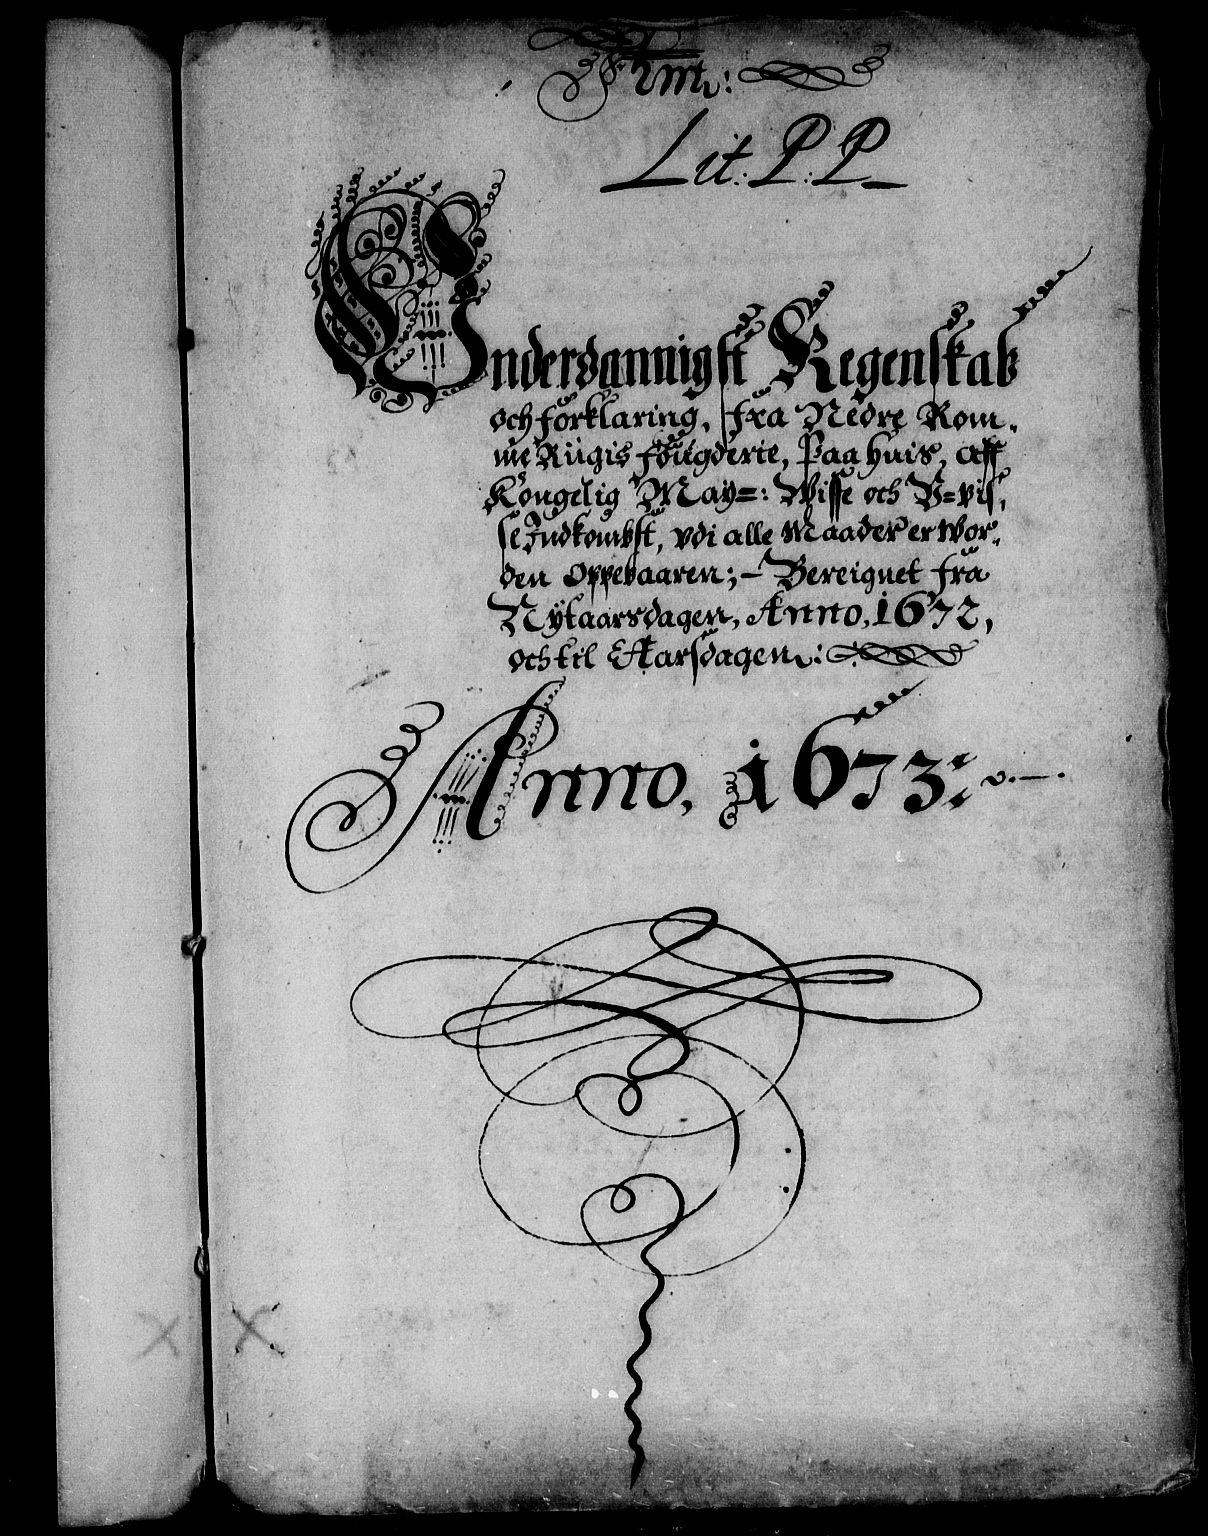 Lit: P: P
Underdannigst Regenskab
och forklaring, fra Nedre Rom-
me Riigis fougderie, Paa huis, aff
Kongelig May=: Wisse och V=vis-
se Indkombst, vdi alle Maader er wor-
den Oppebaaren; - Bereignet fra
Nytaarsdagen, Anno, 1672,
och til Aarsdagen:
Anno, 1673: